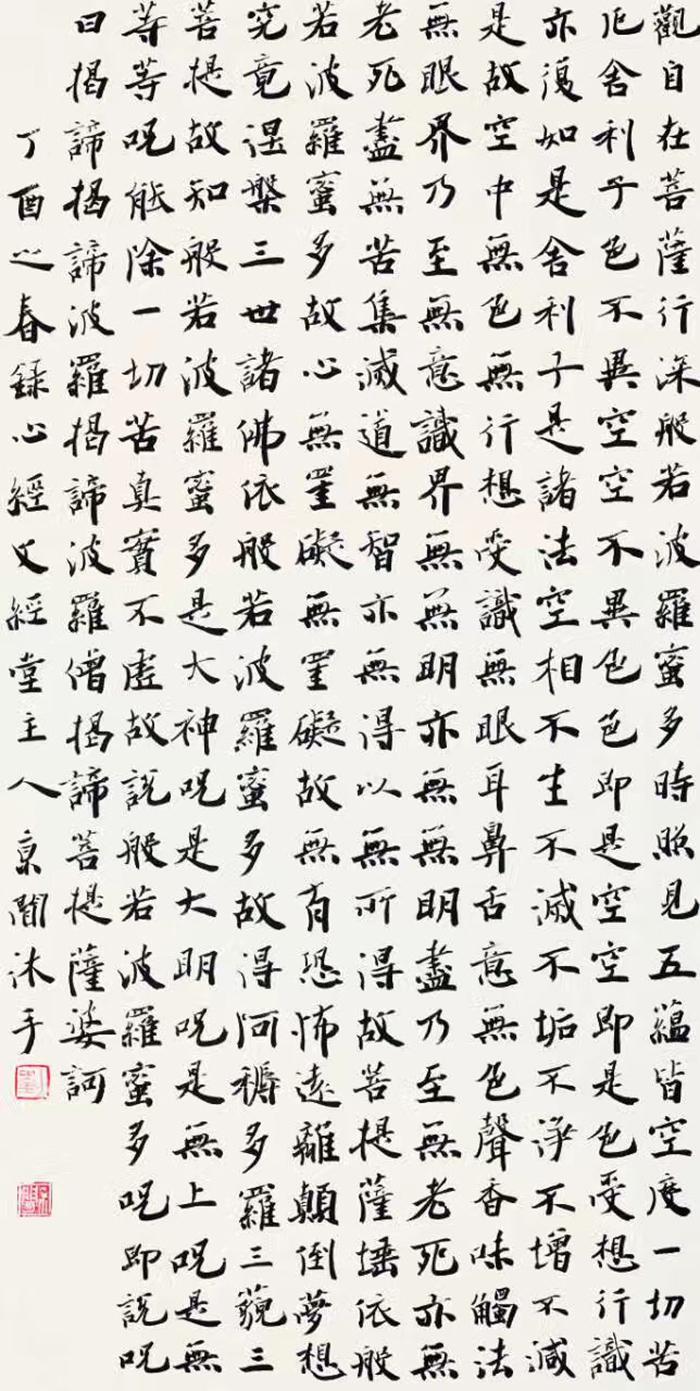 觀自在菩薩行深般若波羅蜜多時照見五蘊皆空度一切苦
厄舍利子色不異空空不異色色即是空空即是色受想行識
亦復如是舍利子是諸法空相不生不滅不垢不淨不增不減
是故空中無色無行想受識無眼耳鼻舌意無色聲香味觸法
無眼界乃至無意識界無無明亦無無明盡乃至無老死亦無
老死盡無苦集滅道無智亦無得以無所得故菩提薩埵依般
若波羅蜜多故心無罣礙無罣礙故無有恐怖遠離顛倒夢想
究竟涅槃三世諸佛依般若波羅蜜多故得阿耨多羅三藐三
菩提故知般若波羅蜜多是大神呪是大明呪是無上呪是無
等等呪能除一切苦真實不虛故說般若波羅蜜多呪即說呪
曰揭諦揭諦波羅揭諦波羅僧揭諦菩提薩婆訶
丁酉之春錄心經文經堂主人京沐手